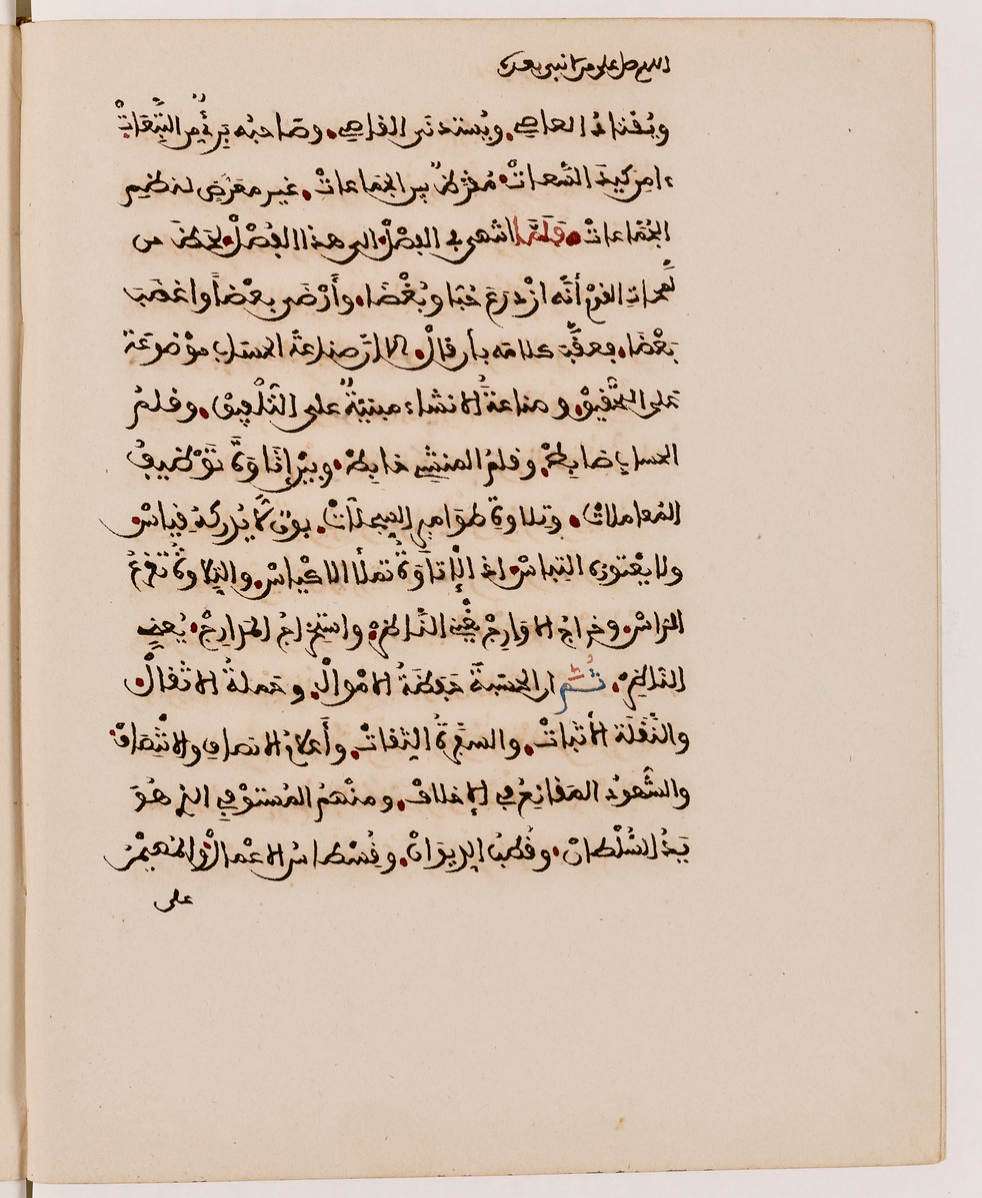 اللهم صل على من لا نبي بعده
ويُقتادُ العاصي. ويُستدنَى القاصي. وصَاحبُه بَرِئٌ من التَّبِعَاتْ
ءامن كيدَ السُّعاتْ. مُقرَّظٌ بين الجَمَاعاتْ. غير معَرَّض لنظم
الجُمَّاعاتْ. فلمَّا انتهى في الفصْلْ. الى هذا الفصْلْ. لحَظَ من
لَمحاتِ القومْ أنَّه ازْدرَعَ حُبّا وبُغْضَا. وأَرْضَى بعْضاً واغضَبَ
بَعْضَا. فعقَّب كلامَه بأن قالْ. الا انّ صناعةَ الحساب موْضوعَة
عَلى التحْقيقْ. وصناعةُ الانشاء مبنيّةٌ على التَّلْفِيقْ. وقلمُ
الحساب ضابطْ. وقلمُ المنشي خابطْ. وبيْن إِتَاوَةِ تَوْظيفِ
المُعاملاتْ. وتلاوةِ طوَامِيرِ السِجلّاتْ. بونٌ لا يُدركهُ قياسْ
ولا يعْتورهُ التِباسْ. اذ الإتاوَةُ تملأُ الاكْياسْ. والتِّلاوةُ تفرّغُ
الراسْ. وخراجُ الاوَارِجْ يُغْنِي النَّاظرْ. واستِخراجُ المَدَارِجْ. يُعني
النَّاظِرْ. ثُمَّ ان الحسَبَةَ حَفظَةُ الامْوالْ. وحَملةُ الاثقالْ
والنَّقَلَة الأَثباتْ. والسفَرةُ الثِقاتْ. وأَعلامُ الانصافِ والانْتِصَافْ
والشُّهودُ المَقانِعُ في الاخلافْ. ومنْهمُ المُستوْفِي الذي هُوَ
يَدُ السُّلْطانْ. وقُطبُ الديوَانْ. وقُسْطاسُ الاعْمالْ والمُهيْمنُ
على